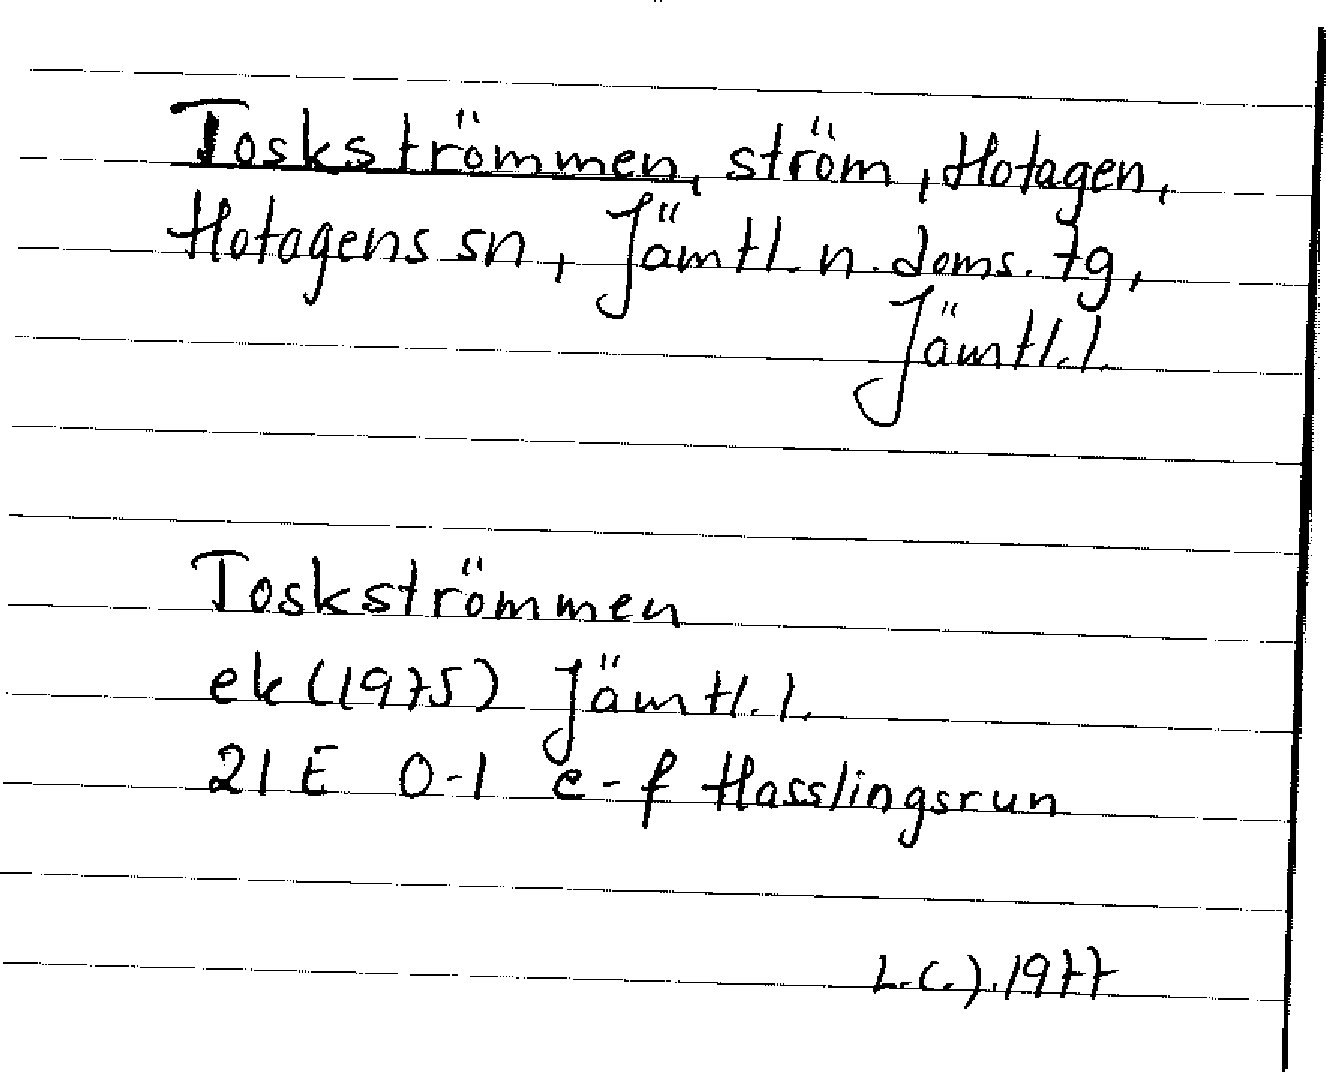 Toskströmmen, ström, Hotagen,
Hotagens sn, Jämtl. n. doms. tg,
Jämtl. l.
Toskströmmen
ek (1975) Jämtl. l.
21 E 0-1 e-f Hasslingsrun
1977